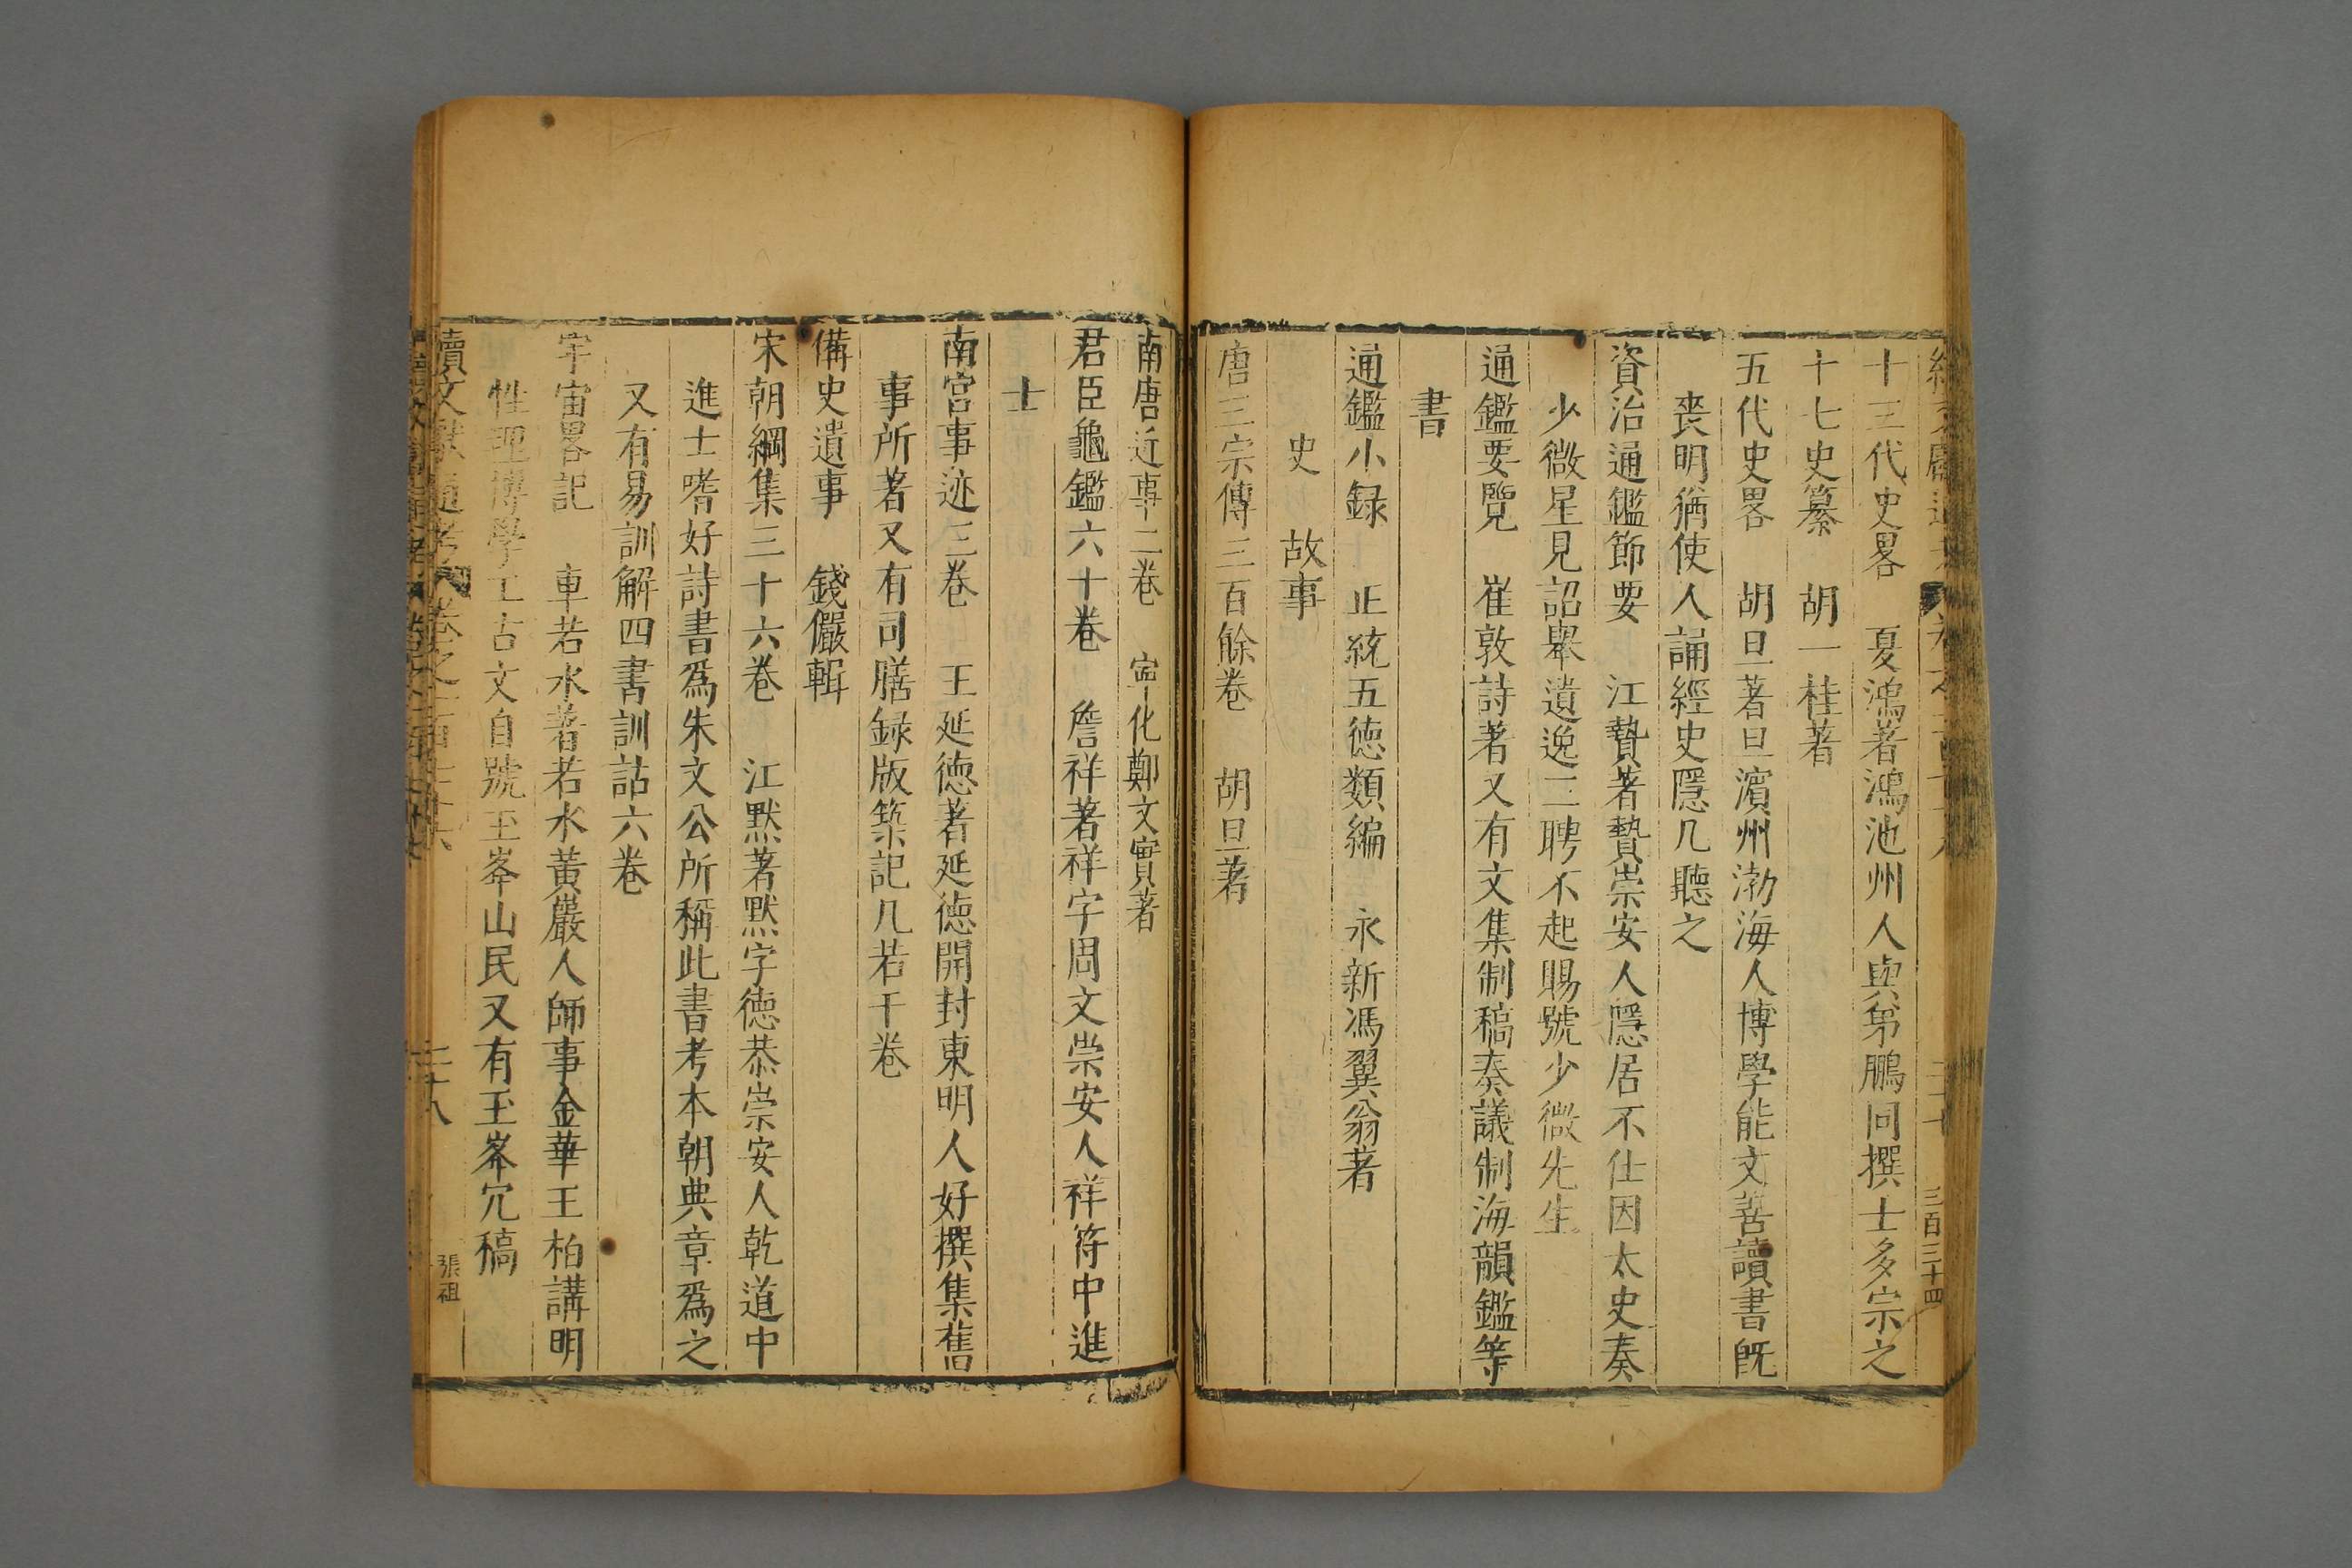 十三代史畧　夏鴻著鴻池州人與弟鵬同撰士多宗之
十七史纂　胡一桂著
五代史畧　胡旦著旦濵州渤海人博學能文善讀書旣
喪明猶使人誦經史隱几聽之
資治通鑑節要　江贄著贄崇安人隱居不仕因太史奏
少微星見詔舉遺逸三聘不起賜號少微先生
通鑑要覽　崔敦詩著又有文集制稿奏議制海韻鑑等
書
通鑑小録　正統五德類編　永新馮翼翁著
史　故事
唐三宗傳三百餘卷　胡旦著
三百三十四
南唐近事二卷　寧化鄭文寶著
君臣龜鑑六十卷　詹祥著祥字周文崇安人祥符中進
士
南宮事迹三卷　王延德著延德開封東明人好撰集舊
事所著又有司膳録版築記几若干卷
備史遺事　錢儼輯
宋朝綱集三十六卷　江默著默字德恭崇安人乾道中
進士嗜好詩書爲朱文公所稱此書考本朝典章爲之
又有易訓解四書訓詁六卷
宇宙畧記　車若水著若水黃巖人師事金華王柏講明
性理博學工古文自號玉峯山民又有玉峯冗稿
續文獻通考
二十八
張祖